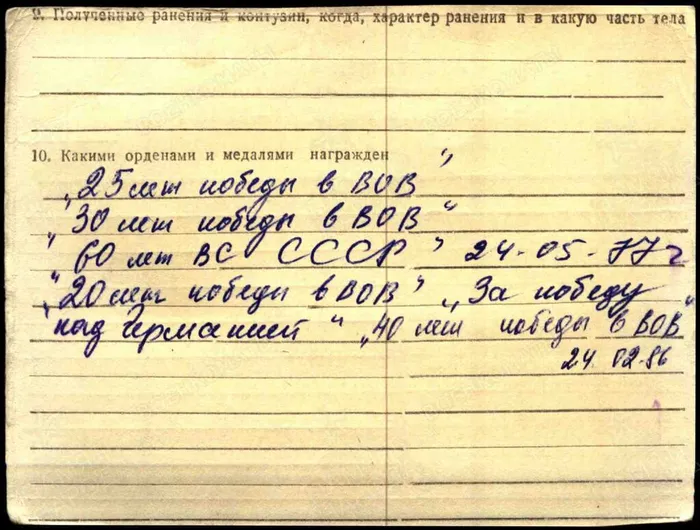 9. Полученные ранения и контузии, когда, характер ранения и в какую часть тела
10. Какими орденами и медалями награжден
„25 лет победы в ВОВ"
„30 лет победы в ВОВ"
„60 лет ВС СССР" 24-05-77 г
„20 лет победы в ВОВ" „За победу
над Германией" „40 лет победы в ВОВ"
24 02-86